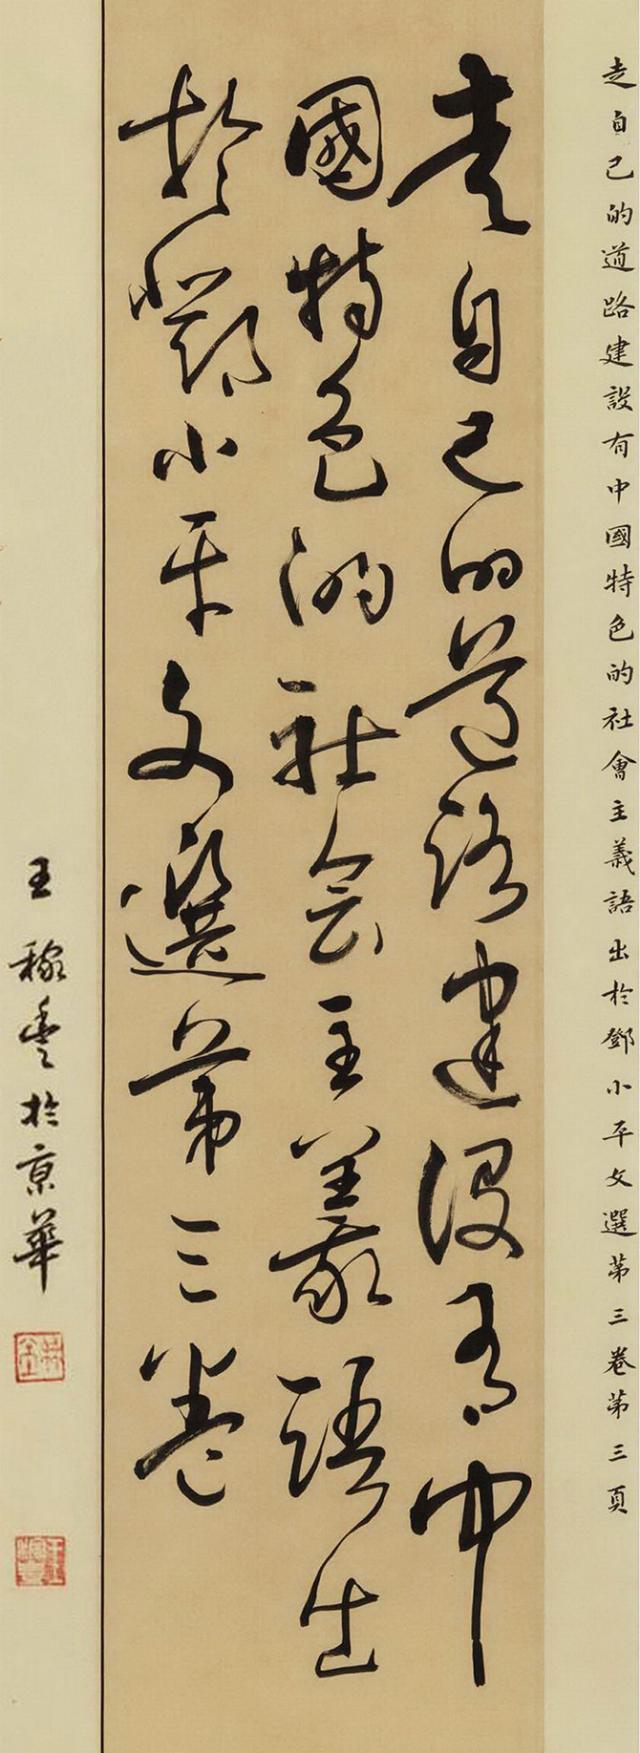 走自己的道路建設有中國特色的社會主義語出於鄧小平文選第三卷第三頁
走自己的道路建設有中
國特色的社会主義語出
於鄧小平文選第三卷
王稼豊於京華